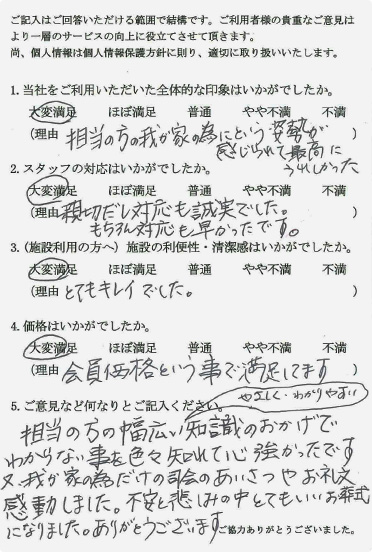 ご記入はご回答いただける範囲で結構です。ご利用者様の貴重なご意見は
より一層のサービスの向上に役立てさせて頂きます。
尚、個人情報は個人情報保護方針に則り、適切に取り扱いいたします。
1. 当社をご利用いただいた全体的な印象はいかがでしたか。
大変満足 ほぼ満足 普通 やや不満 不満
(理由 担当の方の我が家の為にという姿勢が )
感じられて最高に
うれしかった
2. スタッフの対応はいかがでしたか。
大変満足 ほぼ満足 普通 やや不満 不満
(理由 親切だし対応も誠実でした。 )
もちろん対応も早かったです。
3. (施設利用の方へ) 施設の利便性・清潔感はいかがでしたか。
大変満足 ほぼ満足 普通 やや不満 不満
(理由 とてもキレイでした。 )
4. 価格はいかがでしたか。
大変満足 ほぼ満足 普通 やや不満 不満
(理由 会員価格という事で満足してます )
5. ご意見など何なりとご記入ください。
やさしく・わかりやすい
担当の方の幅広い知識のおかげで
わからない事を色々知れて心強かったです
又、我が家の為だけの司会のあいさつやお礼文
感動しました。不安と悲しみの中とてもいいお葬式
になりました。ありがとうございます
ご協力ありがとうございました。